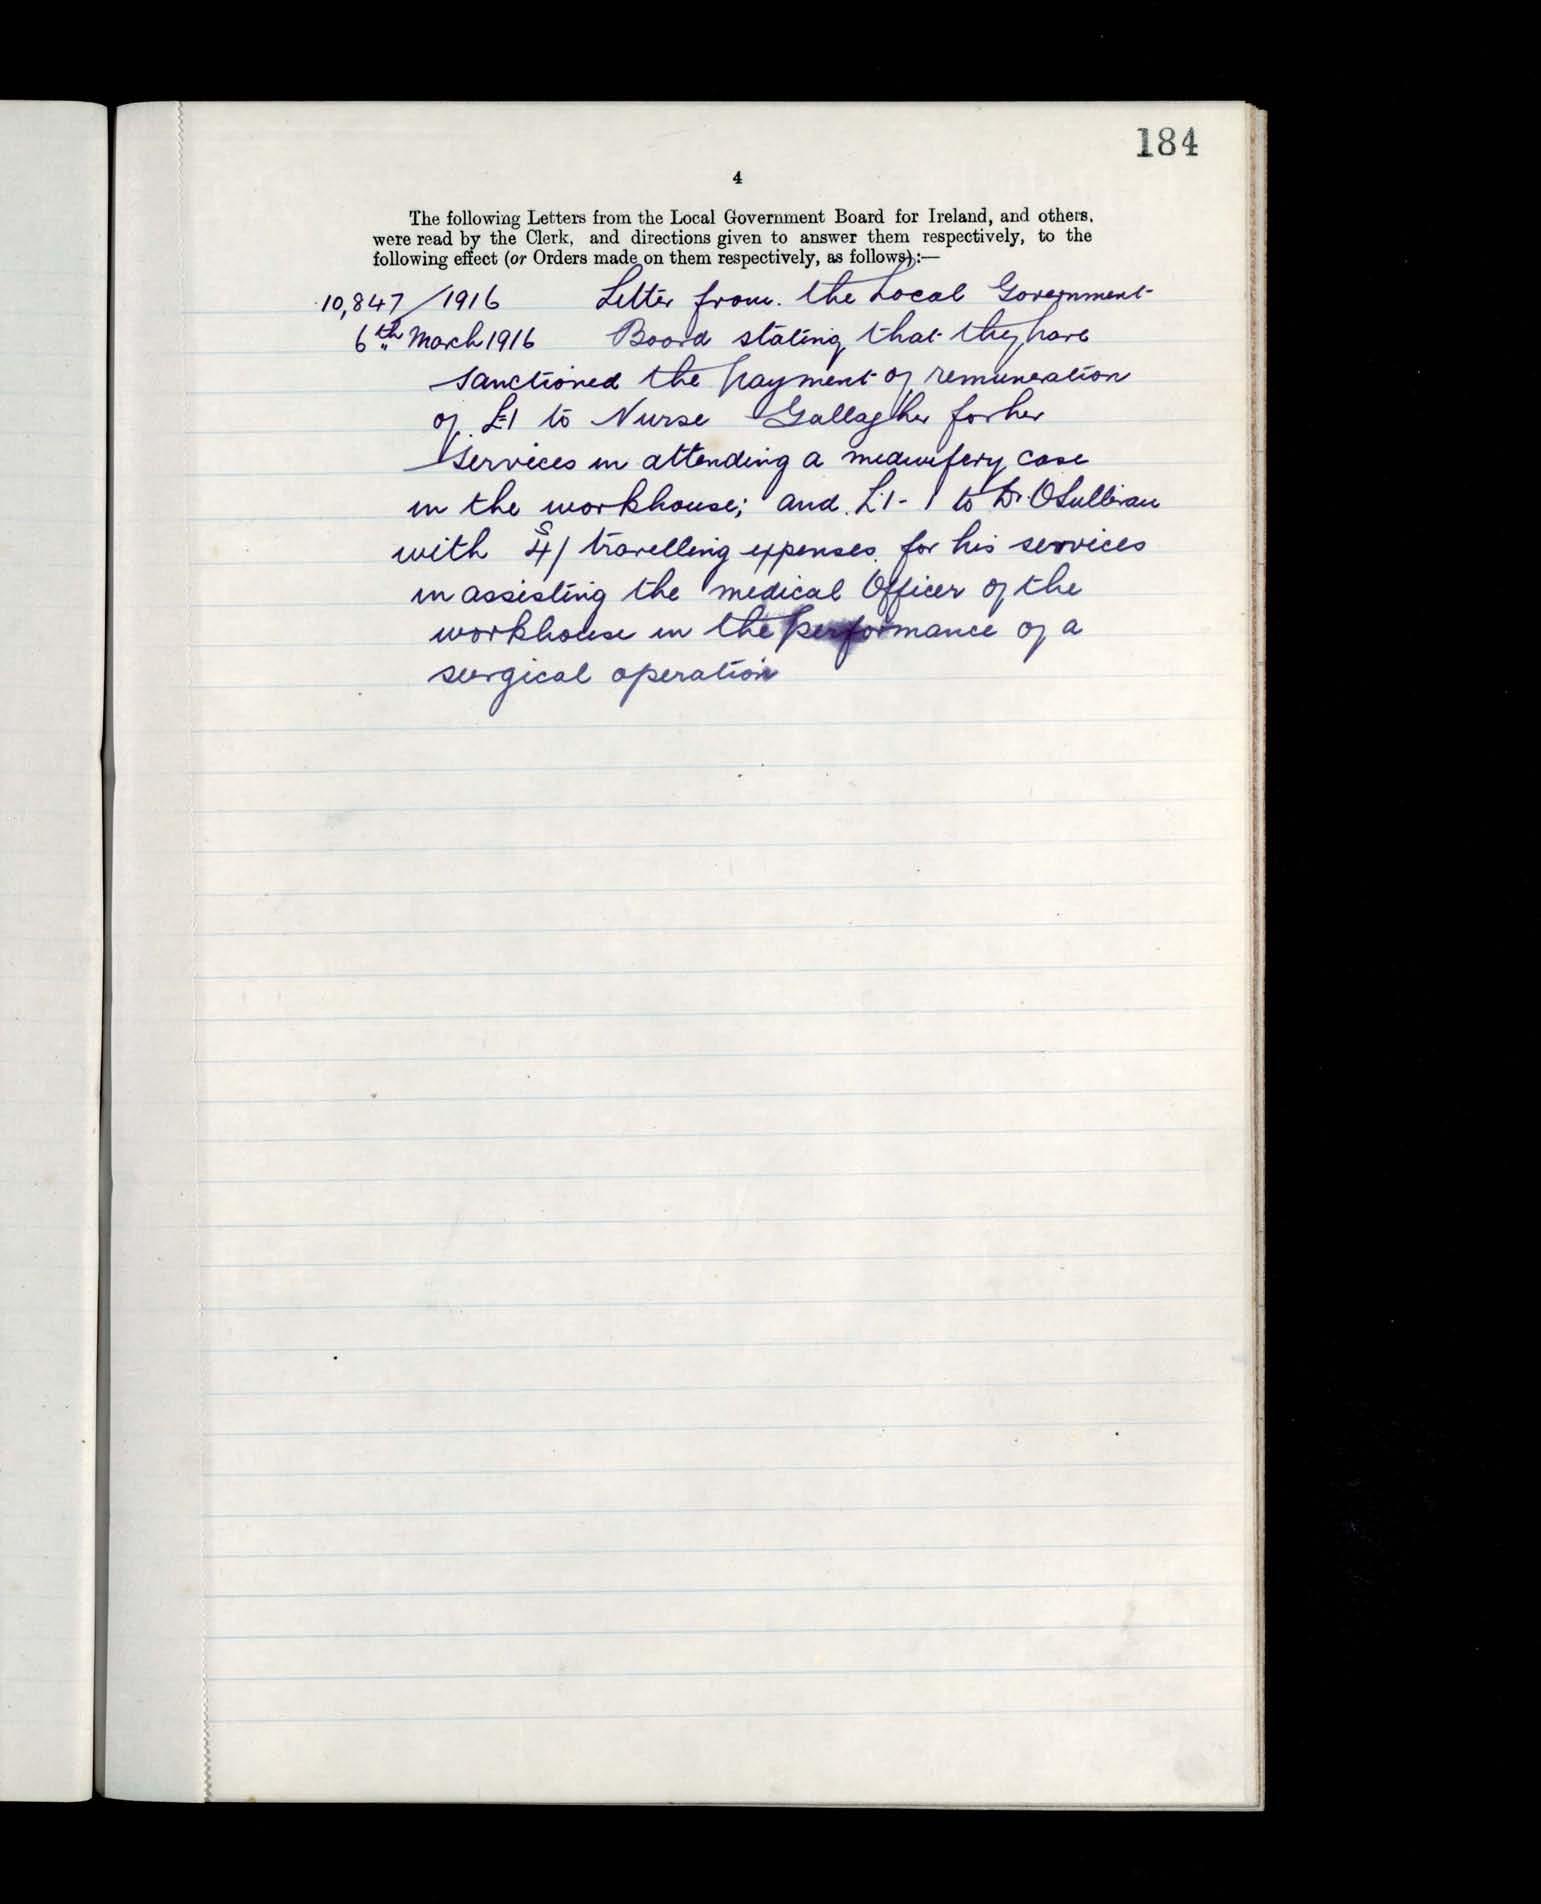 184
4
The following Letters from the Local Government Board for Ireland, and others,
were read by the Clerk, and directions given to answer them respectively, to the
following effect (or Orders made on them respectively, as follows):—
10,847/1916 Letter from the Local Government
6th March 1916 Board stating that they have
sanctioned the payment of remuneration
of £1 to Nurse Gallagher for her
services in attending a midwifery case
in the workhouse; and £1-1 to Dr. OSullivan
with 4s/ travelling expenses for his services
in assisting the medical Officer of the
workhouse in the performance of a
surgical operation